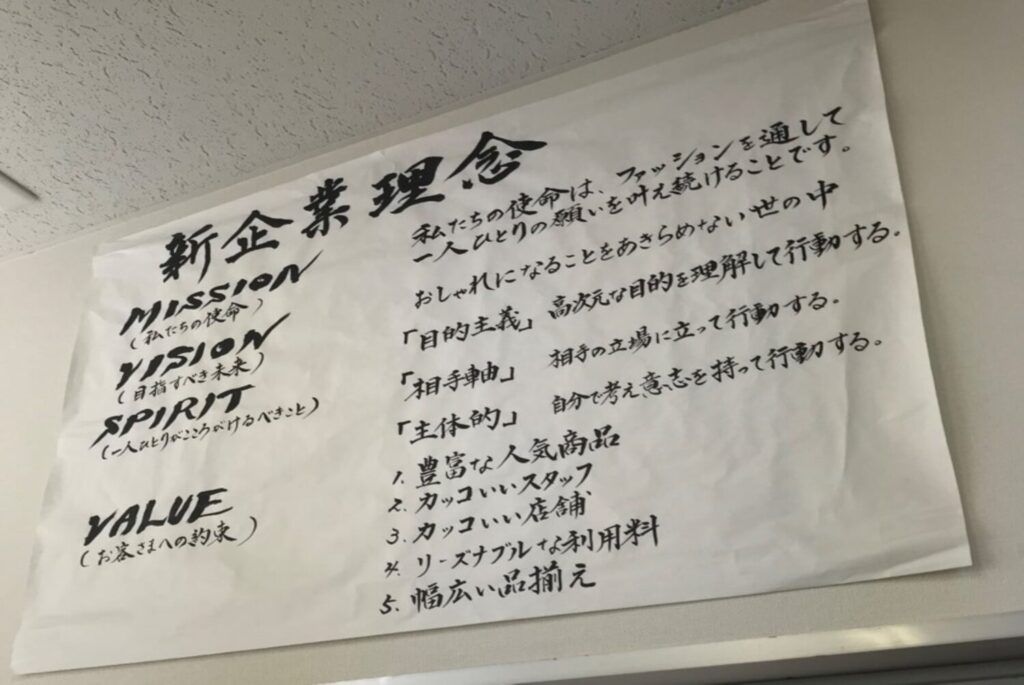 新企業理念
MISSION
(私たちの使命)
私たちの使命は、ファッションを通して
一人ひとりの願いを叶え続けることです。
VISION
(目指すべき未来)
おしゃれになることをあきらめない世の中
SPIRIT
(一人ひとりがこころがけるべきこと)
「目的主義」 高次元な目的を理解して行動する。
「相手軸」 相手の立場に立って行動する。
「主体的」 自分で考え意志を持って行動する。
VALUE
(お客さまへの約束)
1. 豊富な人気商品
2. カッコいいスタッフ
3. カッコいい店舗
4. リーズナブルな利用料
5. 幅広い品揃え